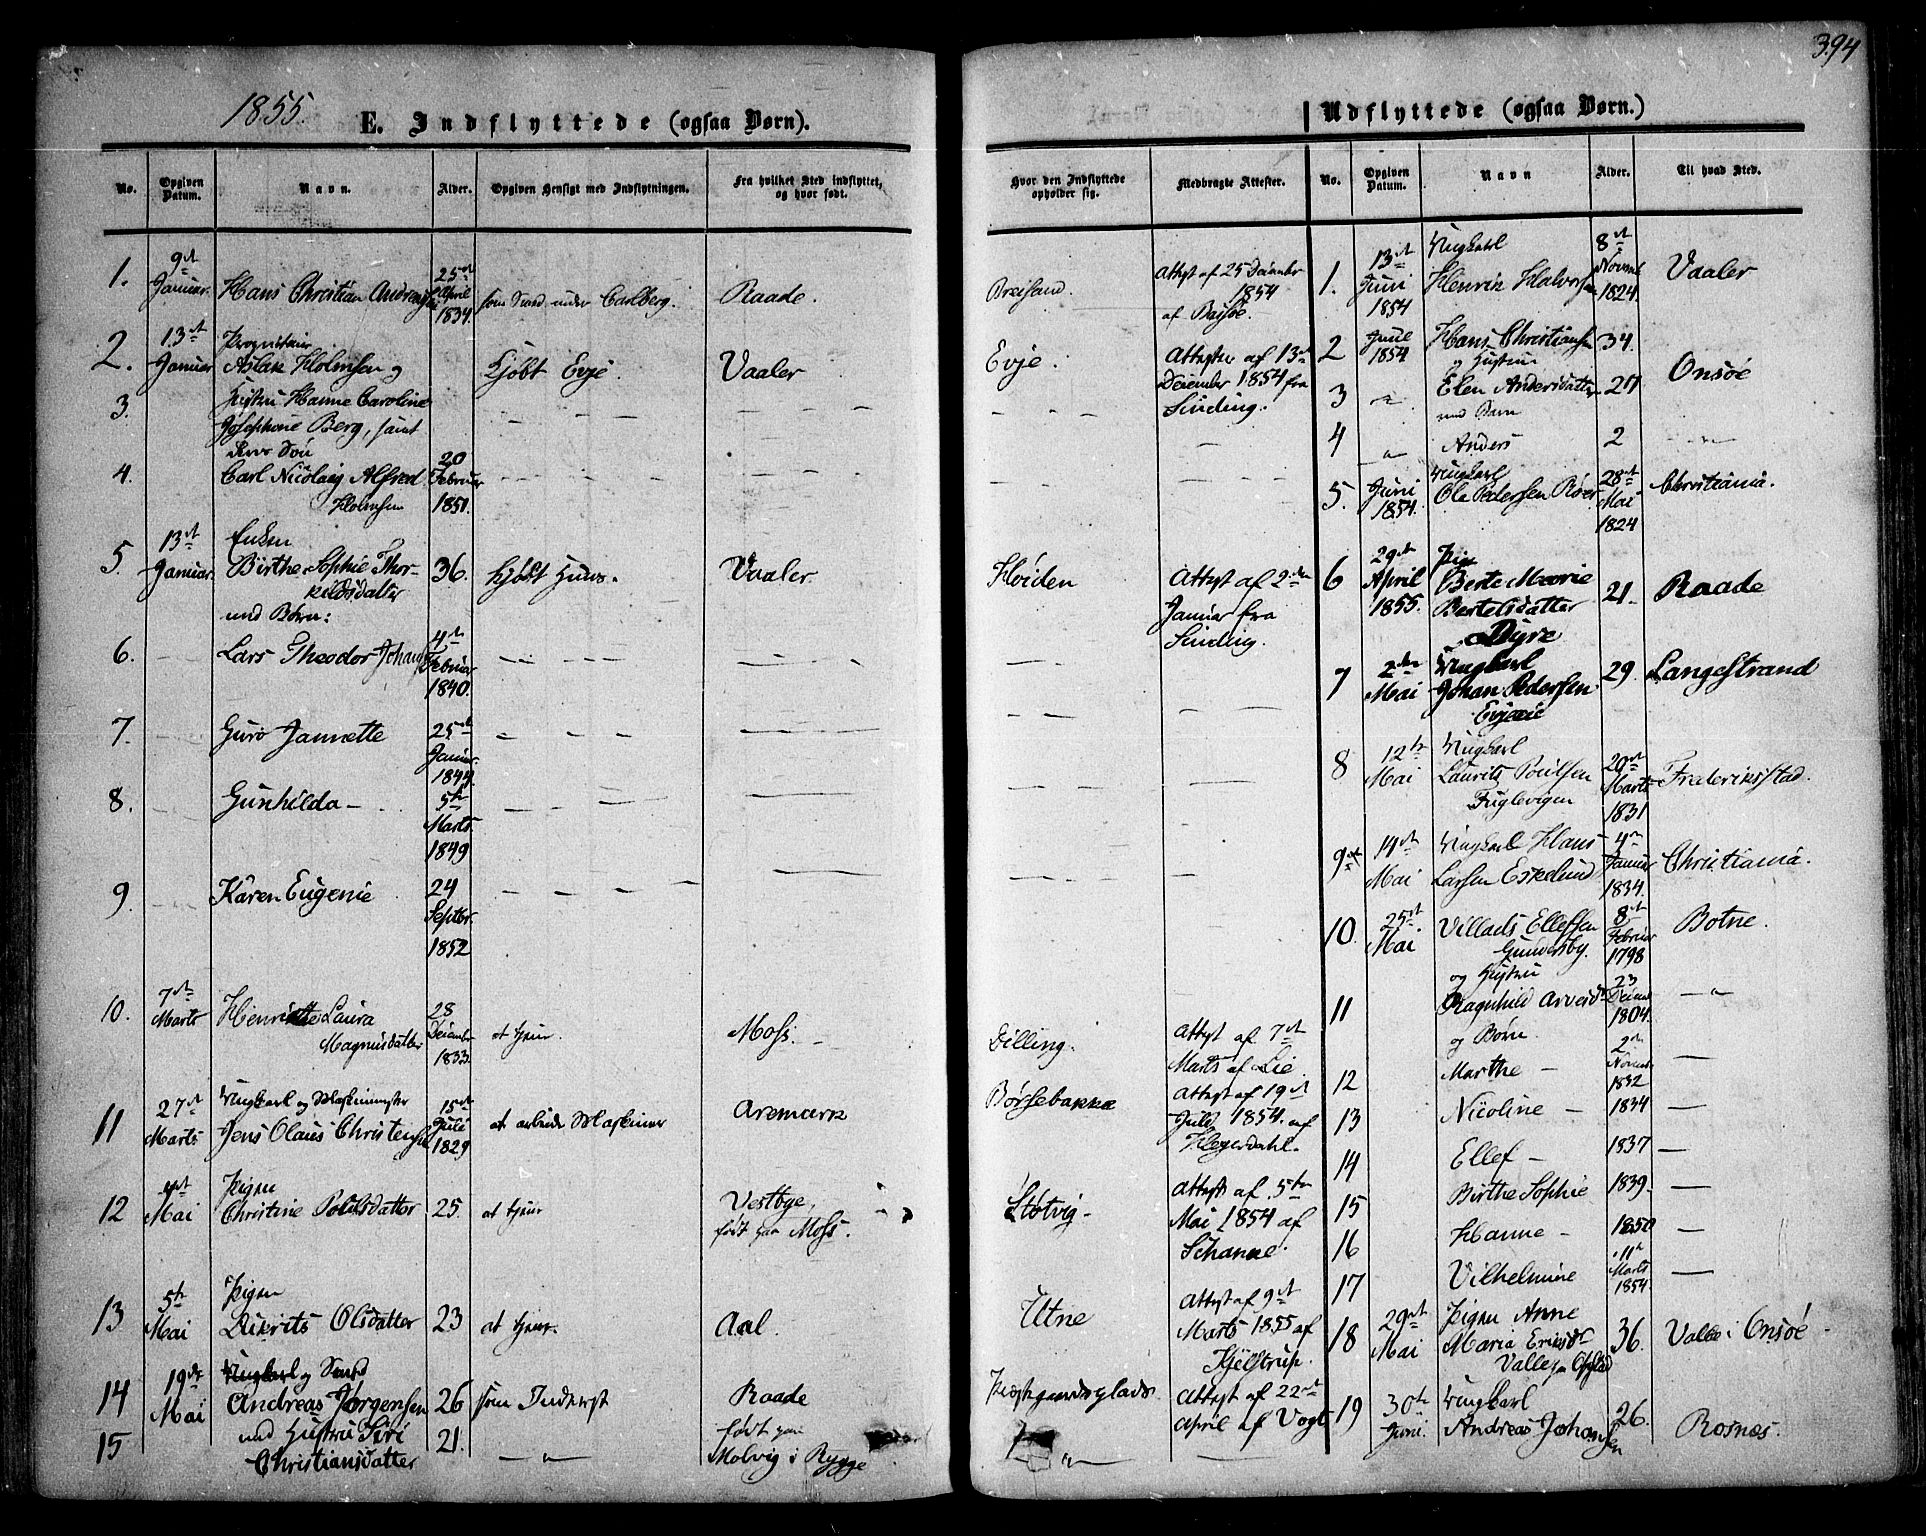 394
1855.
E. Indflyttede (ogsaa Børn).
No. Opgiven Datum. Navn. Alder. Opgiven Hensigt med Indflytningen. Fra hvilket Sted indflyttet, og hvor født.
1. 9de Januar Hans Christian Andreassen 25de April 1834 som Smed under Carlberg. Raade.
2. 13de Januar Proprietair
Aslak Holmsen og Kjøbt Evje. Vaaler
3. Hustru Hanne Caroline
Josephine Berg, samt
deres Søn
4. Carl Nicolaij Alfred Holmsen 20 Februar 1851.
5. 13de Januar Enken
Birthe Sophie Thorkildsdatter 36. kjøbt Huus. Vaaler
med Børn:
6. Lars Theodor Johans 4de Februar 1840.
7. Guro Jannette 25de Januar 1844
8. Gunhilda - 5te Marts 1849
9 Karen Eugenie 24 Septbr. 1852
10. 7de Marts Henriette Laura
Magnusdatter 28 December 1833. at tjene. Moss.
11 27de Marts Ungkarl og Maskinmester
Jens Olaus Christensen 15de Juli 1829 at arbeide Maskiner Aremark
12 Mai Pigen
Christine Poulsdatter 25. at tjene Vestbye,
født paa Moss.
13 5te Mai Pigen
Olsdatter 23 at tjene. Aal.
14 19de Mai Ungkarl og Smed
Andreas Jørgensen 26 som Inderst Raade
15 med Hustru Siri
Christiansdatter 21. født paa
Molvig i Rygge
Hvor den Indflyttede opholder sig. Medbragte Attester.
Breisand. Attest af 25 December
1854
af
Evje. Attester af 13de
December 1854 fra
Sinding.
Hviden Attest af 2den
Januar fra
Sinding.
Dilling. Attest af 7de
Marts af Lie.
Børsebakke Attest af 19de
Juli 1854. af
Hegerdahl.
Støtvig. Attest af 5te
Mai 1854 af
Schanne.
Utne Attest af 9de
Marts 1855 af
Kjelstrup.
Præstgaardsplads Attest af 22de
April af Vogt
Udflyttede (ogsaa Børn.)
No. Opgiven Datum. Navn Alder. Til hvad Sted.
1. 13de Juni 1854 Ungkarl
Henrik Halvorsen 8de Novmb 1824. Vaaler
2 Juul 1854 Hans Christiansen 34.
og Hustru
3 Elen Andersdatter 27 Onsøe
med Barn
4 Anders 2
5. Juni 1854. Ungkarl
Ole Pedersen Røer 28de Mai 1824 Christiania.
6 29de April 1855. Pige
Berte Marie
Bertelsdatter
Dyre 21. Raade
7 2den Mai Ungkarl
Johan Pedersen
Evjeeie 29. Langestrand
8 12te Mai Ungkarl
Laurits Poulsen
Fuglevigen 20de Marts 1831 Frederiksstad.
9 14de Mai Ungkarl Hans
Larsen Eskelund 4de Januar 1834. Christiania.
10. 25de Mai Villads Ellefsen
Gundersby. 8de Februar 1798 Botne.
og Hustru
11 Ragnhild Arvesd 23 Decmb 1804.
og Børn.
12 Marthe - 2de Novmb 1832
13 Nicoline - 1834
14 Ellef - 1837
15 Birthe Sophie 1839.
16 Hanne - 1850
17 Vilhelmine 11te Marts 1854.
18 29de Mai Pigen Anne
Maria Eriksd
Valle 36. Valle i Onsøe.
19 30te Juni. Ungkarl
Andreas Johansen 26. Rosnes.